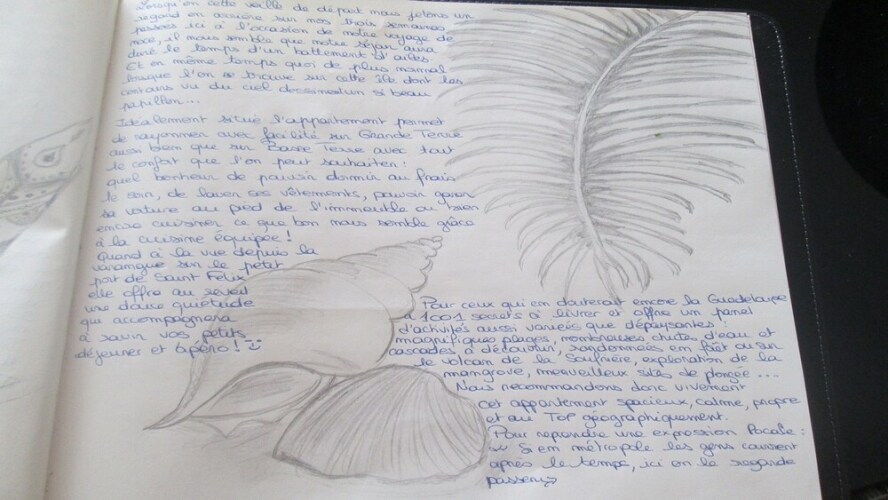 Lorsqu'en cette veille de départ nous jetons un
regard en arrière sur nos trois semaines
passées ici à l'occasion de notre voyage de
noce, il nous semble que notre séjour aura
duré le temps d'un battement d'ailes.
Et en même temps quoi de plus normal
lorsque l'on se trouve sur cette île dont les
contours vu du ciel dessineraient un si beau
papillon...
Idéalement situé l'appartement permet
de rayonner avec facilité sur Grande Terre
aussi bien que sur Basse Terre avec tout
le confort que l'on peut souhaiter:
quel bonheur de pouvoir dormir au frais
le soir, de laver ses vêtements, pouvoir garer
sa voiture au pied de l'immeuble ou bien
encore cuisiner ce que bon nous semble grâce
à la cuisine équipée!
Quand à la vue depuis la
varangue sur le petit
port de Saint Félix
elle offre au réveil
une douce quiétude
qui accompagnera
à ravir vos petits
déjeuner et apéro! :)
Pour ceux qui en douterait encore la Guadeloupe
a 1001 secrets à livrer et offre un panel
d'activités aussi variées que dépaysantes:
magnifiques plages, nombreuses chutes d'eau et
cascades à découvrir, randonnées en forêt ou sur
le volcan de la Soufrière, exploration de la
mangrove, merveilleux sites de plongée...
Nous recommandons donc vivement
cet appartement spacieux, calme, propre
et au TOP géographiquement.
Pour reprendre une expression locale:
« Si en métropole les gens courent
après le temps, ici on le regarde
passer »